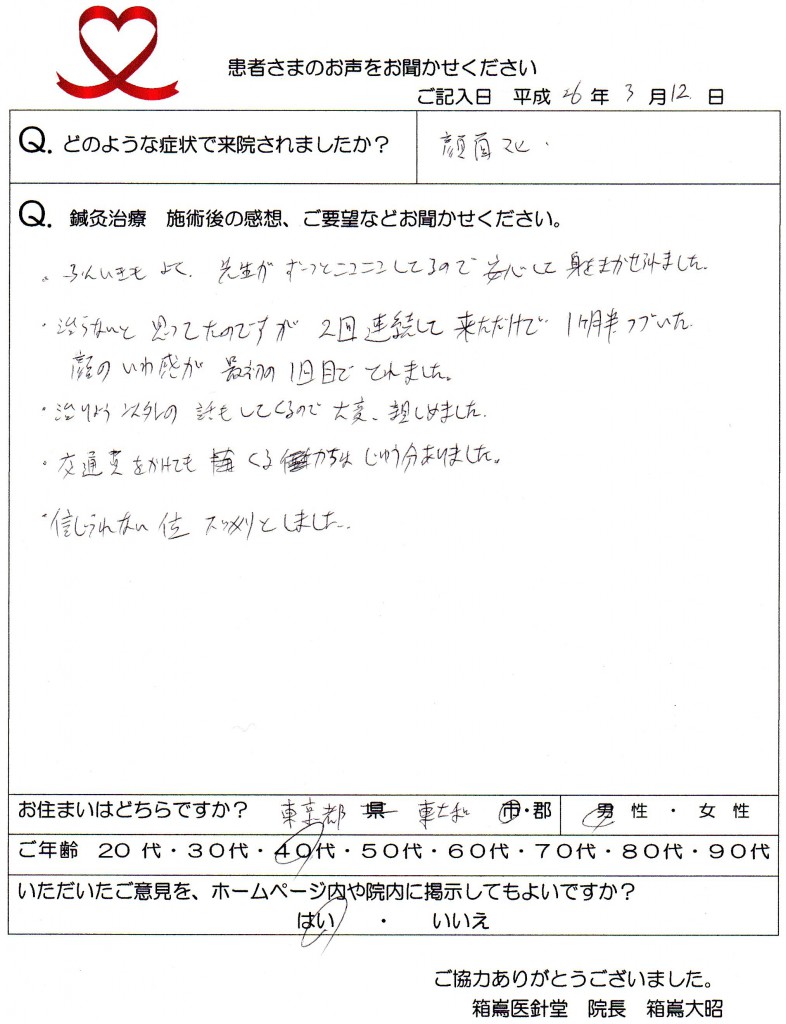 患者さまのお声をお聞かせください
ご記入日 平成 26 年 3 月 12 日
Q. どのような症状で来院されましたか？
顔面マヒ.
Q. 鍼灸治療 施術後の感想、ご要望などお聞かせください。
・ふんいきも よく、先生が ずーっとニコニコしてるので 安心して 身をまかせられました。
・治らないと 思ってたのですが 2回 連続して 来ただけで 1ヶ月半 つづいた
顔の いわ感が 最初の1回目で とれました。
・治りょう 以外の 話もしてくるので 大変、親しめました.
・交通費をかけても くる かちは じゅう分ありました。
・信じられない 位 スッキリとしました.
お住まいはどちらですか？ 東京都 県 東大和 市・郡
男 性 ・ 女 性
ご年齢 20代・30代・40代・50代・60代・70代・80代・90代
いただいたご意見を、ホームページ内や院内に掲示してもよいですか？
はい ・ いいえ
ご協力ありがとうございました。
箱嶌医針堂 院長 箱嶌大昭